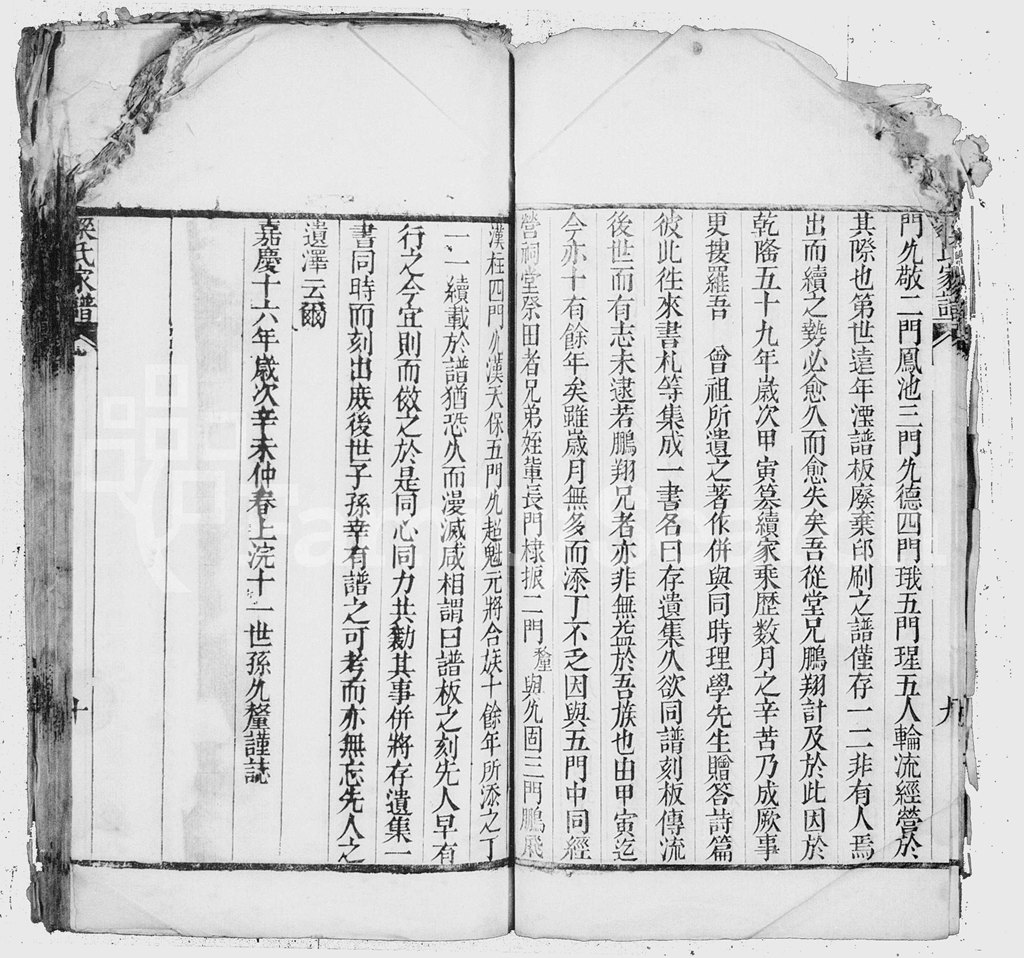 門允敬二門鳳池三門允德四門珴五門瑆五人輪流經營於
其際也第世遠年湮譜板廢棄印刷之譜僅存一二非有人焉
出而續之勢必愈久而愈失矣吾從堂兄鵬翔計及於此因於
乾隆五十九年歲次甲寅篡續家乘歷数月之辛苦乃成厥事
更搜羅吾 曾祖所遺之著作併與同時理學先生贈答詩篇
彼此徃來書札等集成一書名曰存遺集久欲同譜刻板傳流
後世而有志未逮若鵬翔兄者亦非無益於吾族也由甲寅迄
今亦十有餘年矣雖歲月無多而添丁不乏因與五門中同經
營祠堂祭田者兄弟姪輩長門棣振二門釐與允固三門鵬飛
漢柱四門允漢天保五門允超魁元將合族十餘年所添之丁
一一續載於譜猶恐久而漫滅咸相謂曰譜板之刻先人早有
行之今宜則而倣之於是同心同力共勷其事併將存遺集一
書同時而刻出庶後世子孫幸有譜之可考而亦無忘先人之
遺澤云爾
嘉慶十六年歲次辛未仲春上浣十一世孫允釐謹誌
氏家譜
九
十